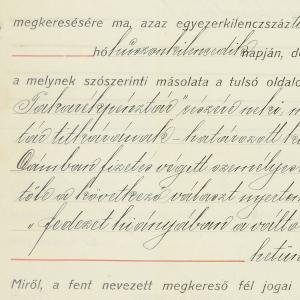 megkeresésére ma, azaz egyezerkilencszáz
hó huszonkilencedik napján, de
a melynek szószerinti másolata a tulsó oldalo
Takarékpénztár" részére neki, m
tár titkárának – határozott k
Czimban fizetés végett személyes
től e a következő választ nyertem
„fedezet hiányában a váltó
hetün
Miről, a fent nevezett megkereső fél jogai